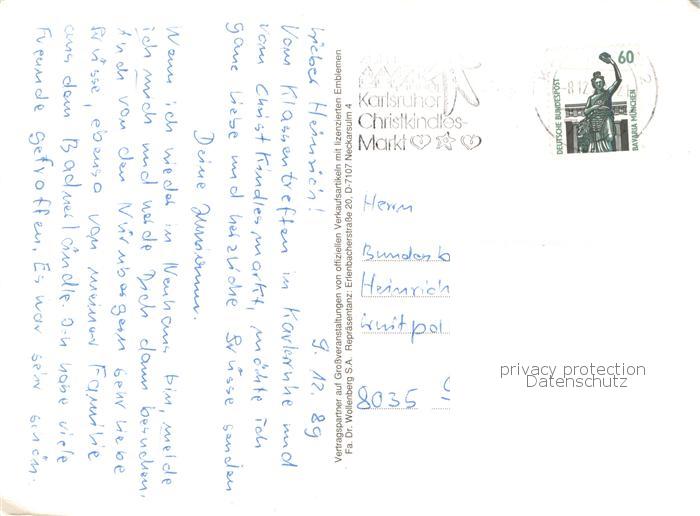 9. 12. 89
Lieber Heinrich!
Vom Klassentreffen in Karlsruhe und
vom Christkindlesmarkt, möchte ich
ganz liebe und herzliche Grüsse senden
Deine
Wenn ich wieder in Neuhaus bin, melde
ich mich und werde Dich dann besuchen.
Auch von den Nürnbergern sehr liebe
Grüsse, ebenso von meiner Familie
aus dem Badnerländle. Ich habe viele
Freunde getroffen. Es war sehr schön.
Vertragspartner auf Großveranstaltungen von offiziellen Verkaufsartikeln mit lizenzierten Emblemen
Fa. Dr. Wollenberg S.A. Repräsentanz: Erlenbacherstraße 20, D-7107 Neckarsulm
Karlsruher
Christkindles-
Markt
-8.12
60
DEUTSCHE BUNDESPOST
BAVARIA MÜNCHEN
Herrn
Bundesb
Heinrich
8035
privacy protection
Datenschutz